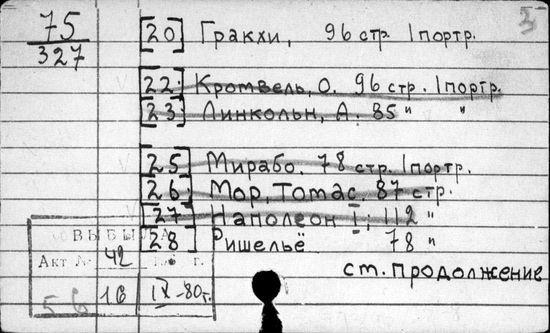 75
327
3
[20] Гракхи, 96 стр. 1 портр.
[22] Кромвель, О. 96 стр. 1 портр.
[23] Линкольн, А. 85 " "
[25] Мирабо. 78 стр. 1 портр.
[26] Мор, Томас, 87 стр.
[27] Наполеон I; 112 "
[28] Ришельё 78 "
ВЫБЫЛА
Акт № 42 г.
56 16 IX-80г.
ст. продолжение